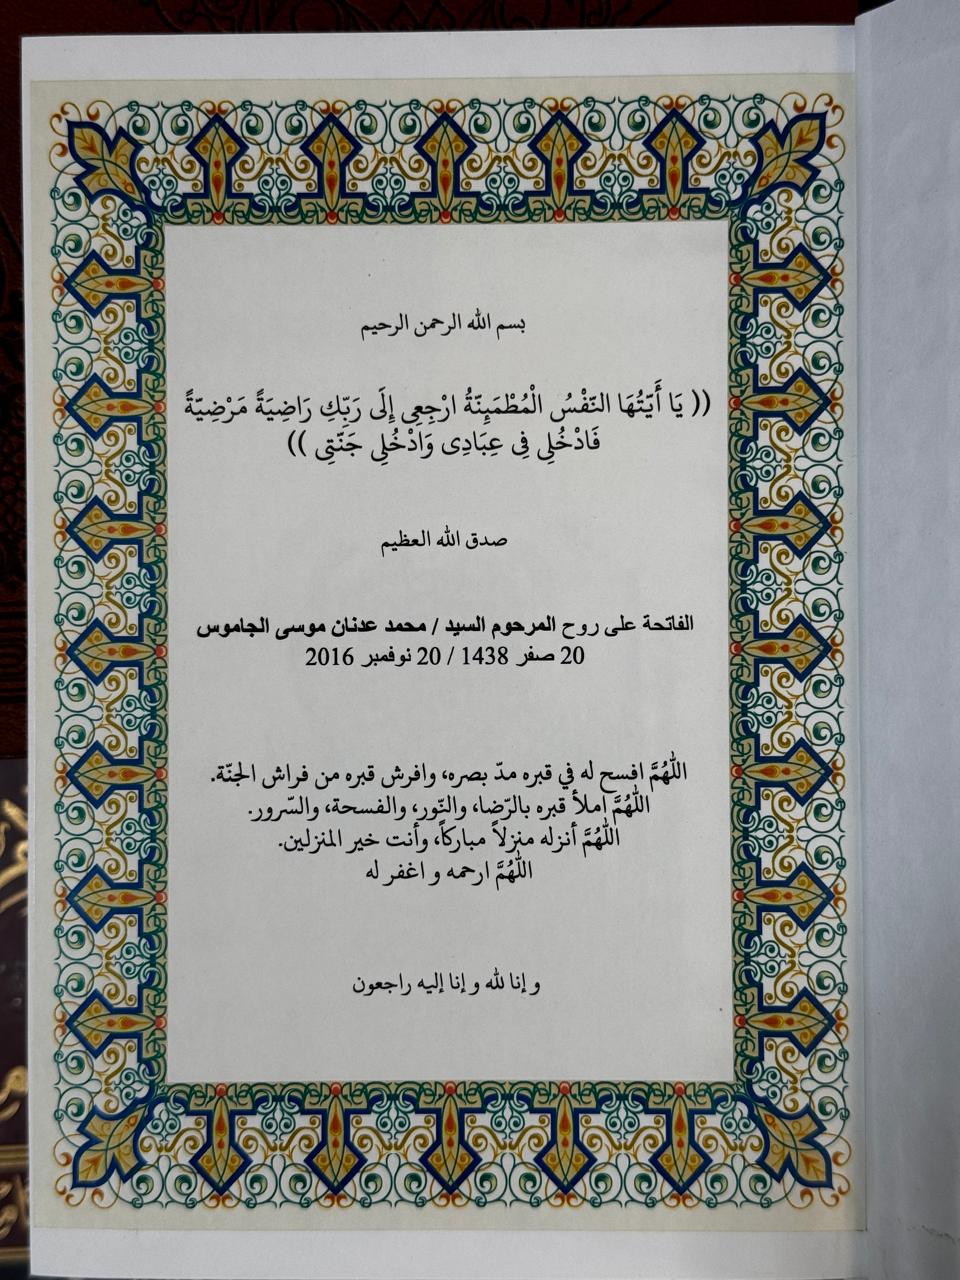 بسم الله الرحمن الرحيم
(( يَا أَيَّتُهَا النَّفْسُ الْمُطْمَئِنَّةُ ارْجِعِى إِلَى رَبِّكِ رَاضِيَةً مَرْضِيَّةً
فَادْخُلِى فِى عِبَادِى وَادْخُلِى جَنَّتِى ))
صدق الله العظيم
الفاتحة على روح المرحوم السيد / محمد عدنان موسى الجاموس
20 صفر 1438 / 20 نوفمبر 2016
اللهُمَّ افسح له في قبره مدّ بصره، وافرش قبره من فراش الجنّة.
اللهُمَّ املأ قبره بالرّضا، والنّور، والفسحة، والسّرور.
اللهُمَّ أنزله منزلاً مباركاً، وأنت خير المنزلين.
اللهُمَّ ارحمه و اغفر له
و إنا لله و إنا إليه راجعون